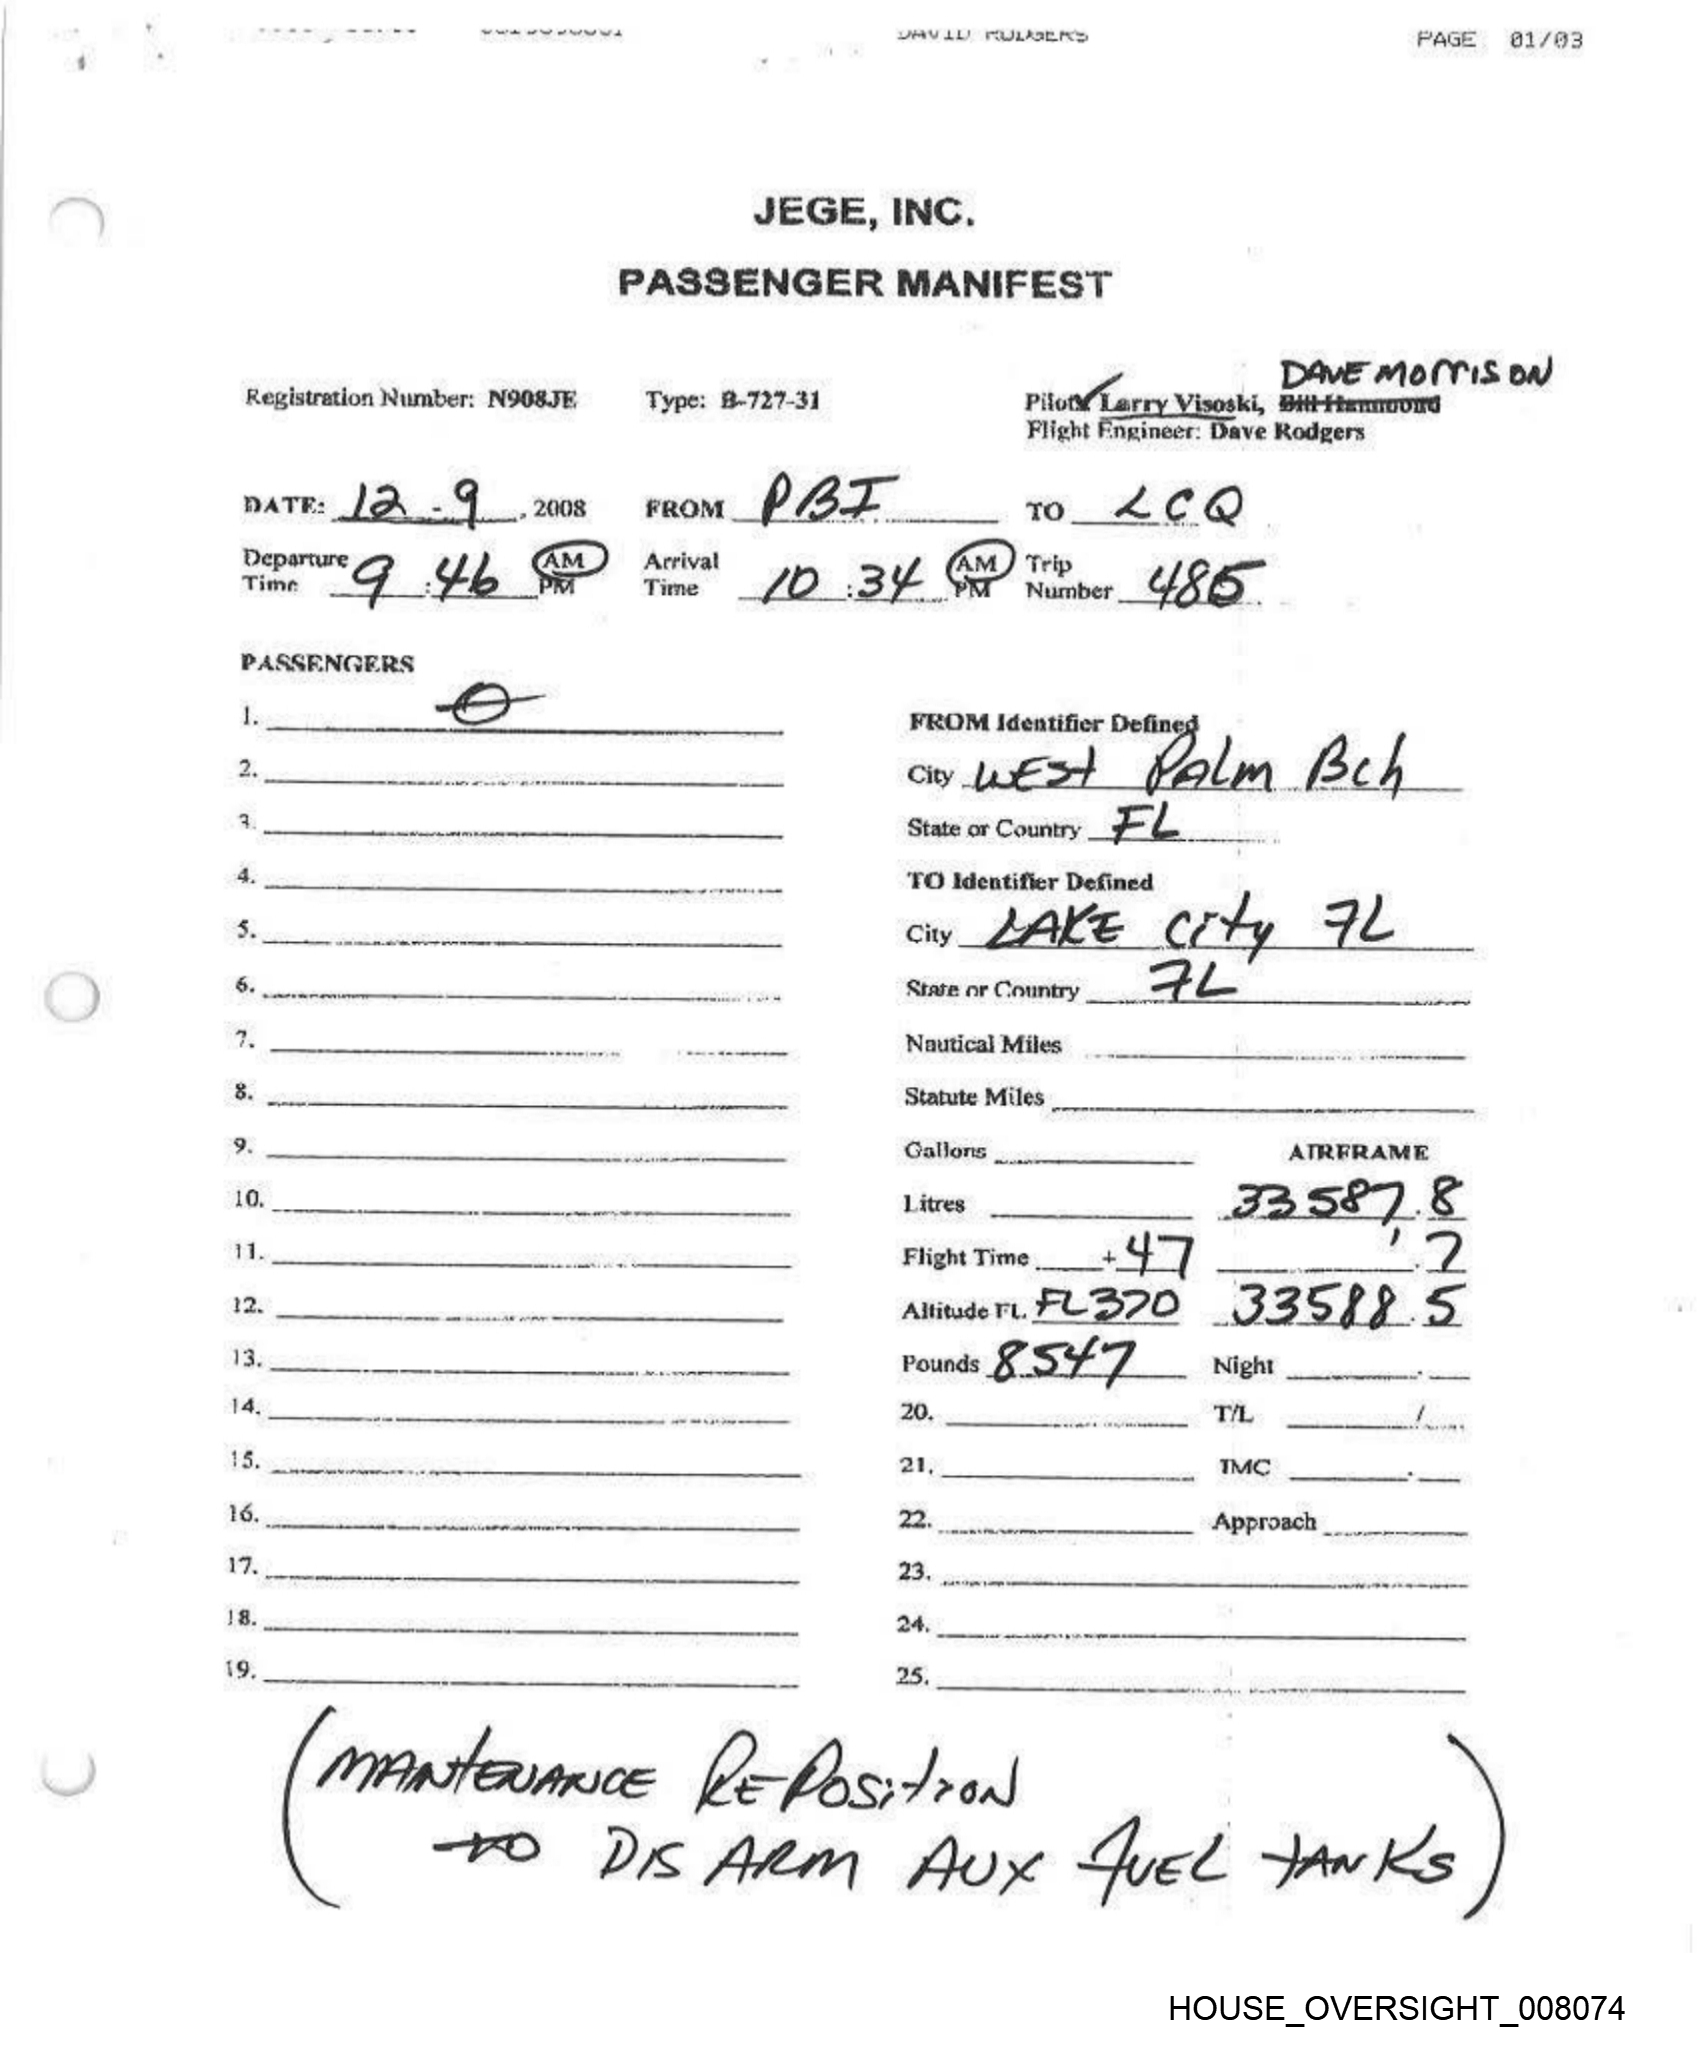 DAVID RODGERS PAGE 01/03
JEGE, INC.
PASSENGER MANIFEST
DAVE MORRISON
Registration Number: N908JE Type: B-727-31 Pilots Larry Visoski, Bill Hammond
Flight Engineer: Dave Rodgers
DATE: 12-9, 2008 FROM PBI TO LCQ
Departure Time 9:46 AM PM Arrival Time 10:34 AM PM Trip Number 485
PASSENGERS
1. 0
FROM Identifier Defined
2.
City WEST PALM Bch
3.
State or Country FL
4.
TO Identifier Defined
5.
City LAKE City FL
6.
State or Country FL
7.
Nautical Miles
8.
Statute Miles
9.
Gallons AIRFRAME
10.
Litres 33587.8
11.
Flight Time +47 .7
12.
Altitude FL. FL370 33588.5
13.
Pounds 8547 Night .
14.
20. T/L /
15.
21. IMC .
16.
22. Approach
17.
23.
18.
24.
19.
25.
(MAINTENANCE REPOSITION
TO DISARM AUX FUEL TANKS)
HOUSE_OVERSIGHT_008074